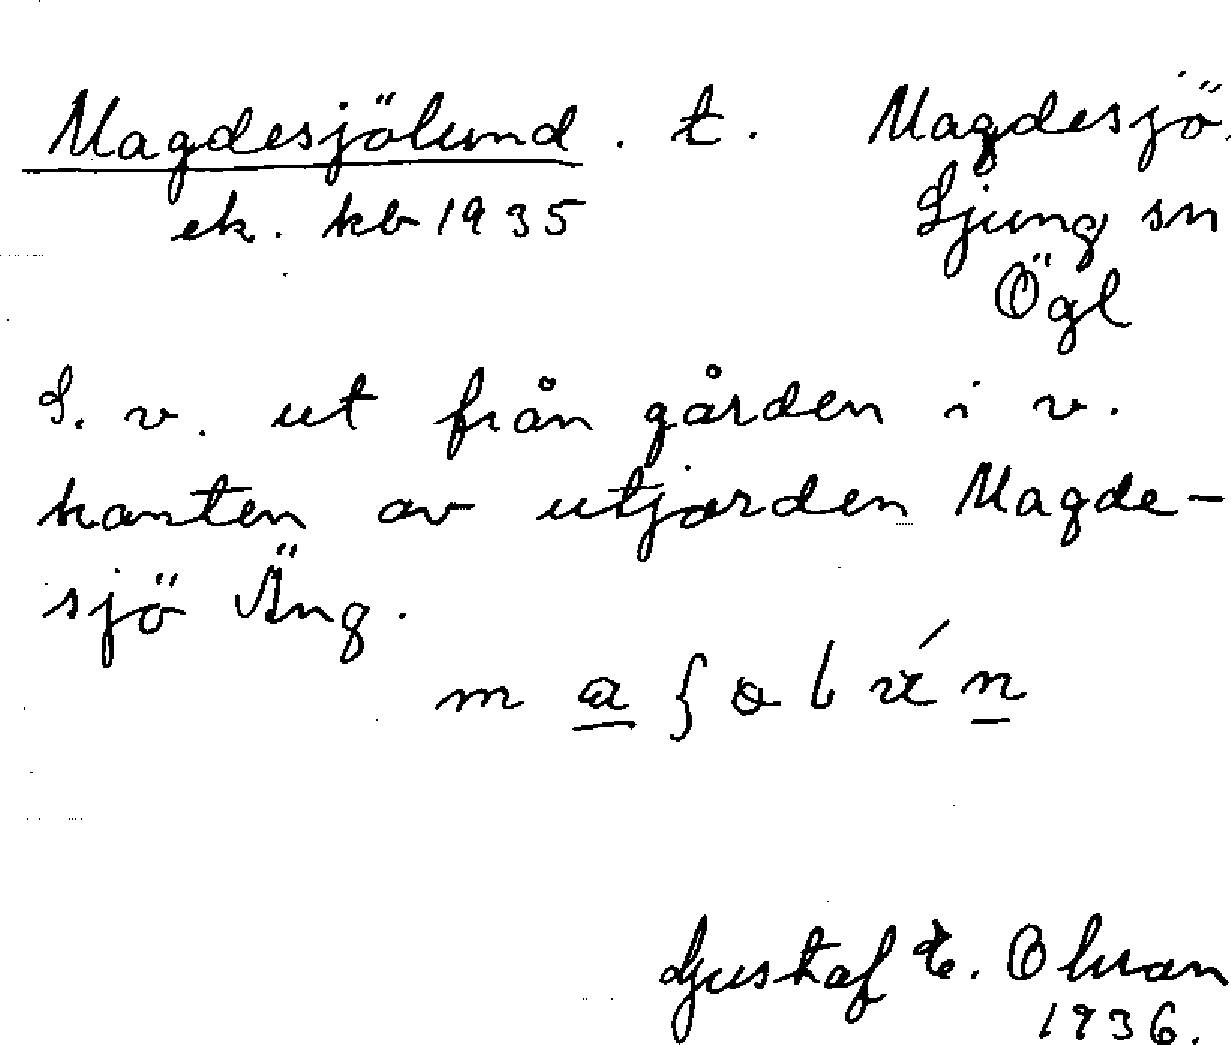 Magdesjölund. t. Magdesjö.
ek. kb 1935 Ljung sn
Ögl
S. v. ut från gården i v.
kanten av utjorden Magde-
sjö Äng.
Gustaf E. Olsson
1936.